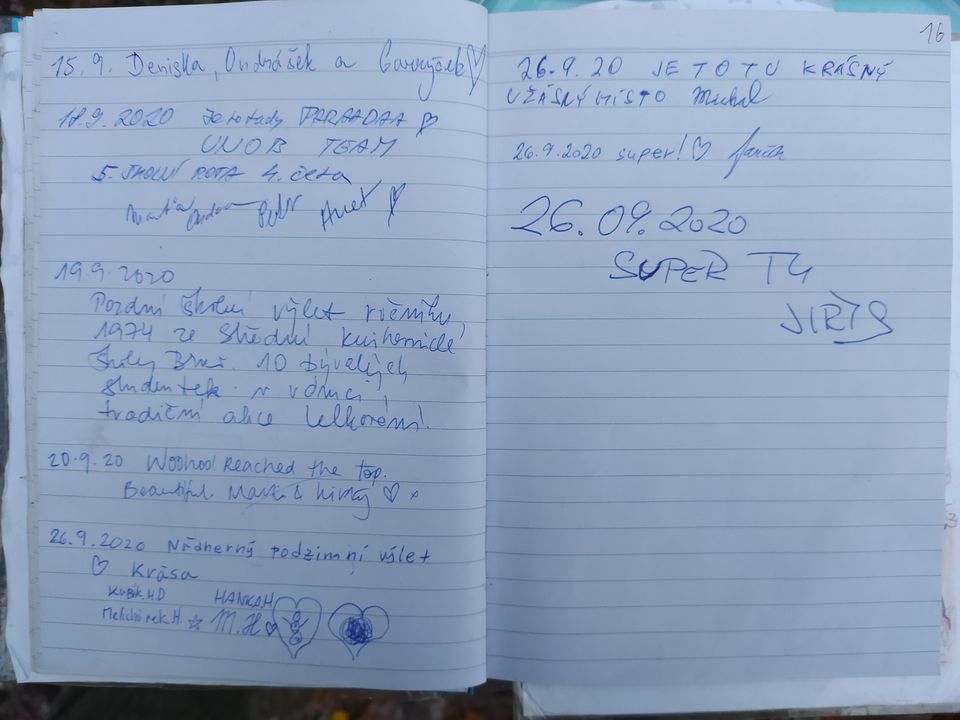 16
15.9. Deniska, Ondrášek a
18.9.2020 Je to tady PARÁÁDAA
UNOB TEAM
5. ŠKOLNÍ ROTA 4. četa
Petr Anet
19.9.2020
Pozdní školní výlet ročníku
1974 ze Střední knihovnické
školy Brno. 10 bývalých
studentek v
tradiční akce
20.9.20 Woohoo! Reached the top.
Beautiful. &
26.9.2020 Nádherný podzimní výlet
Krása
Kubík. H.D HANKA H
Melichárek. H. M. H
26.9.20 JE TO TU KRÁSNÝ
UŽÁSNÝ MÍSTO Michal
26.9.2020 super!
26.09.2020
SUPER